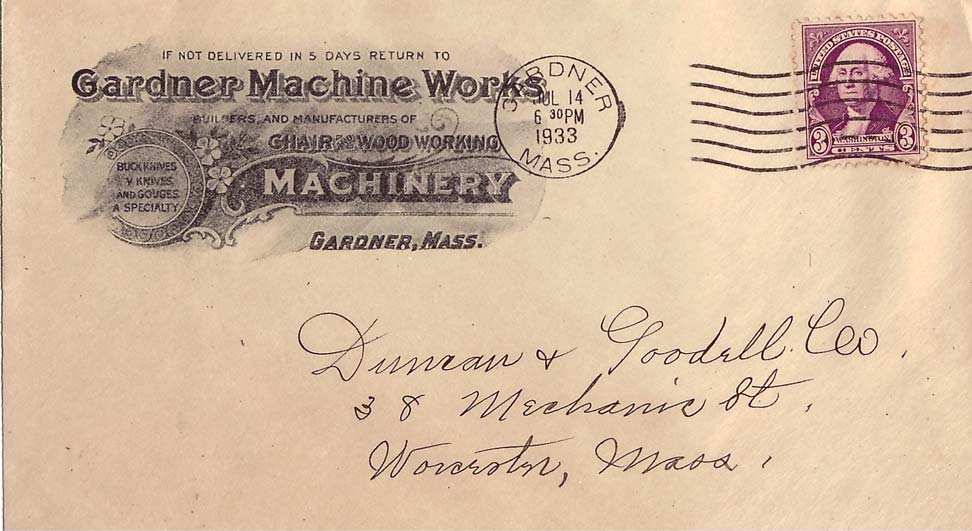 IF NOT DELIVERED IN 5 DAYS RETURN TO
Gardner Machine Works
BUILDERS AND MANUFACTURERS OF
CHAIR AND WOOD WORKING
MACHINERY
GARDNER, MASS.
BUCK KNIVES
V KNIVES
AND GOUGES
A SPECIALTY
GARDNER
JUL 14
6 30 PM
1933
MASS.
UNITED STATES POSTAGE
WASHINGTON
3 CENTS 3
Duncan & Goodell Co.
38 Mechanic St.
Worcester, Mass.